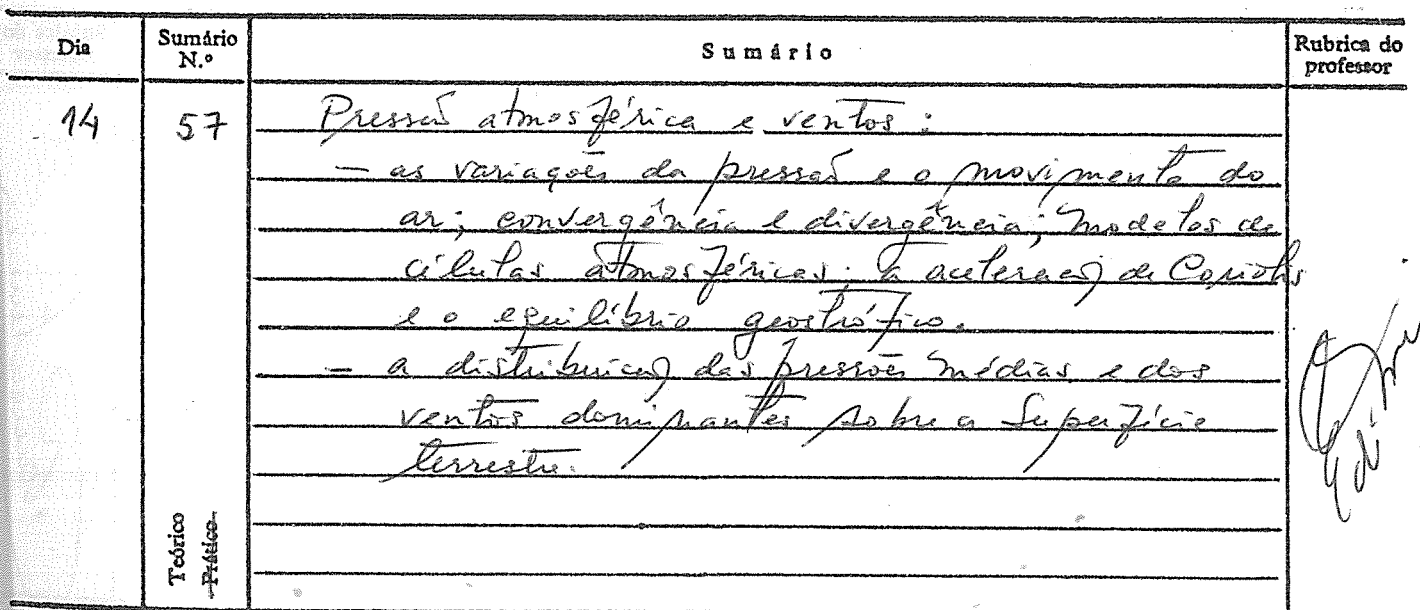 Dia
Sumário N.º
Sumário
Rubrica do professor
14
57
Pressão atmosférica e ventos:
— as variações da pressão e o movimento do
ar; convergência e divergência; modelos de
células atmosféricas. a aceleração de Coriolis
e o equilíbrio geostrófico.
— a distribuição das pressões médias e dos
ventos dominantes sobre a Superfície
terrestre.
Teórico
Prático